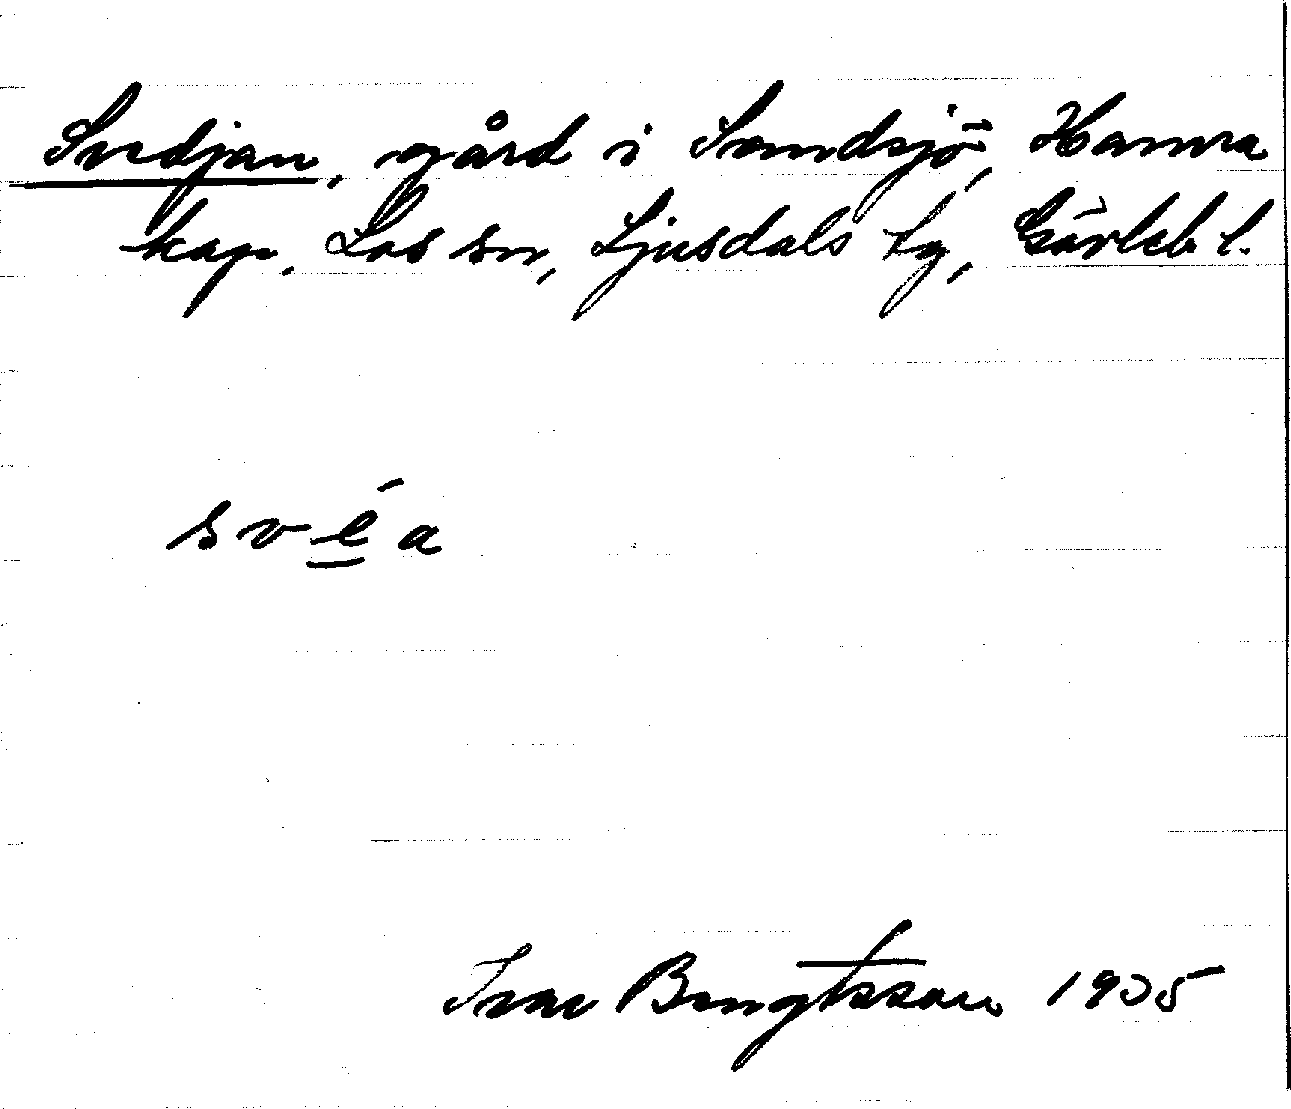 Svedjan, gård i Sandsjö, Hamra
kap. Los sn, Ljusdals tg, Gävleb l.
sv é a
Ivar Bengtsson 1935